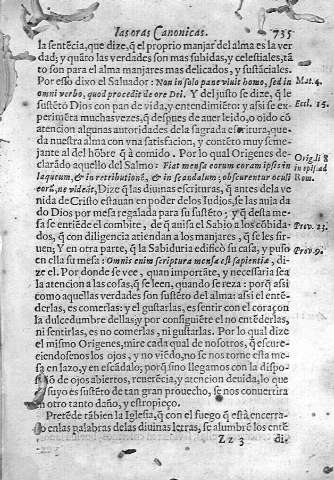 las oras Canonicas. 735
la sentẽcia, que dize, q̃ el proprio manjar del alma es la ver
dad; y quãto las verdades son mas subidas, y celestiales, tã
to son para el alma manjares mas delicados, y sustãciales.
Por esso dixo el Saluador: Non in solo pane viuit homo, sed in Mat. 4.
omni verbo, quod procedit de ore Dei. Y del justo se dize, q̃ le
sustẽtò Dios con pan de vida, y entendimiẽto: y assi se ex- Eccl. 15.
perimẽta muchas vezes, q̃ despues de auer leido, o oido cõ
atencion algunas autoridades dela sagrada escritura, que-
da nuestra alma con vna satisfacion, y contẽto muy seme-
jante al del hõbre q̃ à comido. Por lo qual Origenes de- Orig. li 8
clarãdo aquello del Salmo: Fiat mensa eorum coram ipsis in in epis. ad
laqueum, & in retributionẽ, & in scandalum; obscurentur oculi Rom.
eorũ, ne videãt, Dize q̃ las diuinas escrituras, q̃ antes dela ve
nida de Cristo estauan en poder delos Iudios, se las auia da
do Dios por mesa regalada para su sustẽto; y q̃ desta me-
sa se entiẽde el combite, de q̃ auisa el Sabio a los cõbida- Prov. 23.
dos, q̃ con diligẽcia atiendan a los manjares, q̃ se les sir-
uen; Y en otra parte, q̃ la Sabiduria edificò su casa, y puso Prov. 9.
en ella su mesa: Omnis enim scriptura mensa est sapientia, di-
ze el. Por donde se vee, quan importãte, y necessaria sea
la atencion a las cosas, q̃ se leen, quando se reza: porq̃ assi
como aquellas verdades son sustẽto del alma: assi el entẽ-
derlas, es comerlas; y el gustarlas, es sentir con el coraçon
la dulcedumbre dellas; y por consiguiẽte el no entẽderlas,
ni sentirlas, es no comerlas, ni gustarlas. Por lo qual dize
el mismo Origenes, mire cada qual de nosotros, q̃ escure-
ciendosenos los ojos, y no viẽdo, no se nos torne esta me-
sa en lazo, y en escãdalo; porq̃ sino llegamos con la dispo-
siciõ de ojos abiertos, reuerẽcia, y atencion deuida, lo que
suyo es sustẽto de tan gran prouecho, se nos conuertira
en otro tanto daño, y estropieço.
Pretẽde tãbien la Iglesia, q̃ con el fuego q̃ està encerra-
do enlas palabras de las diuinas letras, se alumbrẽ los entẽ
Zz 3 di-